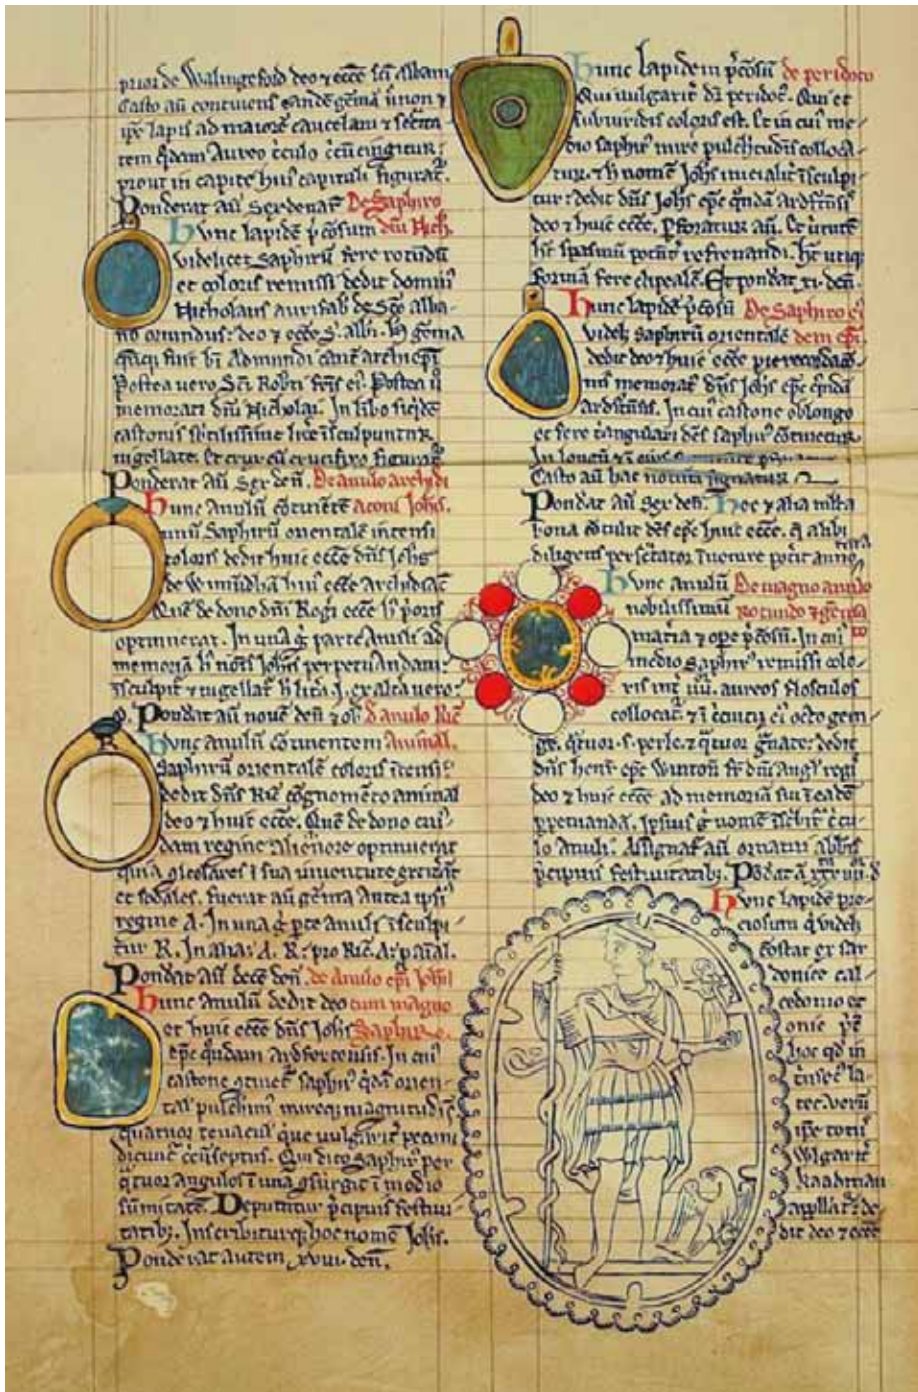 prior de Walingeford deo ⁊ ecce sci Albani
Casto aū continens eandē gēmā
ipe lapis ad maiorē cautelam ⁊
tem qdam Aureo cingitur
prout in capite hui capituli figurat̄.
Ponderat aū sex denar̄ De Saphiro
hunc lapidē p̄cosum dn̄i Nich.
videlicet Saphirū fere rotūdū
et coloris remissi dedit domin̄
Nicholaus aurifab de Sco alba
no oriundus: deo ⁊ ecce S. albi. h gēma
fuit bi Admundi cant archiepi
Postea vero Sci Robti fr̄is ei. Postea
memorati dni Nicholai. In
castonis subtilissime insculpuntur
nigellate. et crux cū crucifixo figurat̄
Ponderat aū sex den̄. De anulo archidi
hunc Anulū cōtinētē aconi Johis.
unū Saphirū orientalē intensi
coloris dedit huic ecce dn̄s Johs
de Wimūdhā hui ecce archidiac̄
Quē de dono dn̄i Rogi ecce h p̄oris
optinuerat. In una g parte Anuli ad
memoriā h nois Johis perpetuandam:
īsculpit̄ ⁊ nigellat̄ h līta J. ex altā vero:
Pondat aū novē den̄ ⁊ ob. D anulo Ric̄
hunc anulū cōtinentem Animal.
Saphirū orientalē coloris ītensi:
dedit Dn̄s Ric̄ cōgnomēto animal
deo ⁊ huic ecce. Quē de dono cui
dam regine Alienore optinuerat
quia gscolares ī sua iuventute extitāt
et sodales. fuerat aū gēma Antea ipsi
regine A. In una g pte anuli īsculpi
tur R. In alia: A. R: pro Ric̄. A: p aīal.
Pondat aū decē den̄. de anulo epi Johil
hunc Anulū dedit deo cum magno
et huic ecce dn̄s Johis Saphire.
epc qūdam Ardfertensis. In cui
castone gtinet̄ saphir qdā orien
tal pulchim mireq magnitudis
quatuor tenaciā que vulgarit̄ pecom
dicunt̄ Qui dito Saphir per
qtuor angulos ī unā gsurgit ī modio
sūmitatē. Deputatur p̄cipuis festivi
tatib;. Inscribiturq; hoc nomē Johis.
Ponderat autem xviii. den̄.
hunc lapidem p̄cosū de peridoto
Qui vulgarit̄ dr peridot. Qui et
subviridis coloris est. Et in cui me
dio saphir mire pulchtudis colloca
tur. ⁊ h nomē Johis inicialit̄ īsculpi
tur: dedit dn̄s Johis epc qndā Ardftn̄sis
deo ⁊ huic ecce. pforatur aū. Et virtutē
ht spasmū potēt refrenandi. ht utiq
formā fere clipealē. Et pondat xi. den̄.
hunc lapidē p̄cosū De saphiro ei
videlz saphirū orientalē dem epi.
dedit deo ⁊ huic ecce pie recordac̄o
nis memorat̄ dn̄s Johis epc qndā
Ardftn̄sis. In cui castone oblongo
et fere tāngulari dēs saphir cōtinetur
In
Casto aū hac nota signatur
Pondat aū sex den̄. Hoc ⁊ alia mīta
bona cōtulit dēs epc huic ecce. q alibi
diligens perscrtator īvenire potit annotata
hunc anulū De magno anulo
nobilissimū rotundo ⁊ gēmato
matīa ⁊ ope p̄cosū. In cui
medio saphir remissi colo
ris int̄ iiii. aureos flosculos
collocat̄. ⁊ ī cīcuitu ei octo gem
ge. qtuor. s. perle. ⁊ qtuor gnate: dedit
dn̄s henr̄ epc Winton̄ fr dn̄i Angl regi
deo ⁊ huic ecce ad memoriā sui ī eadē
ppetuandā. Ipsius g nomē īscbit̄ cīcu
lo Anuli. Assignat̄ aū ornatui abbis
p̄cipuis festivitatib;. Pōdat
hunc lapidē pre
ciosum q videlz
Constat ex sar
donice cal
cedonio et
onice p̄t̄
hoc qd in
tīnsec la
tet. verū
ipe totū
vlgarit̄
Kaadmau
appllat̄: de
dit deo ⁊ ecce